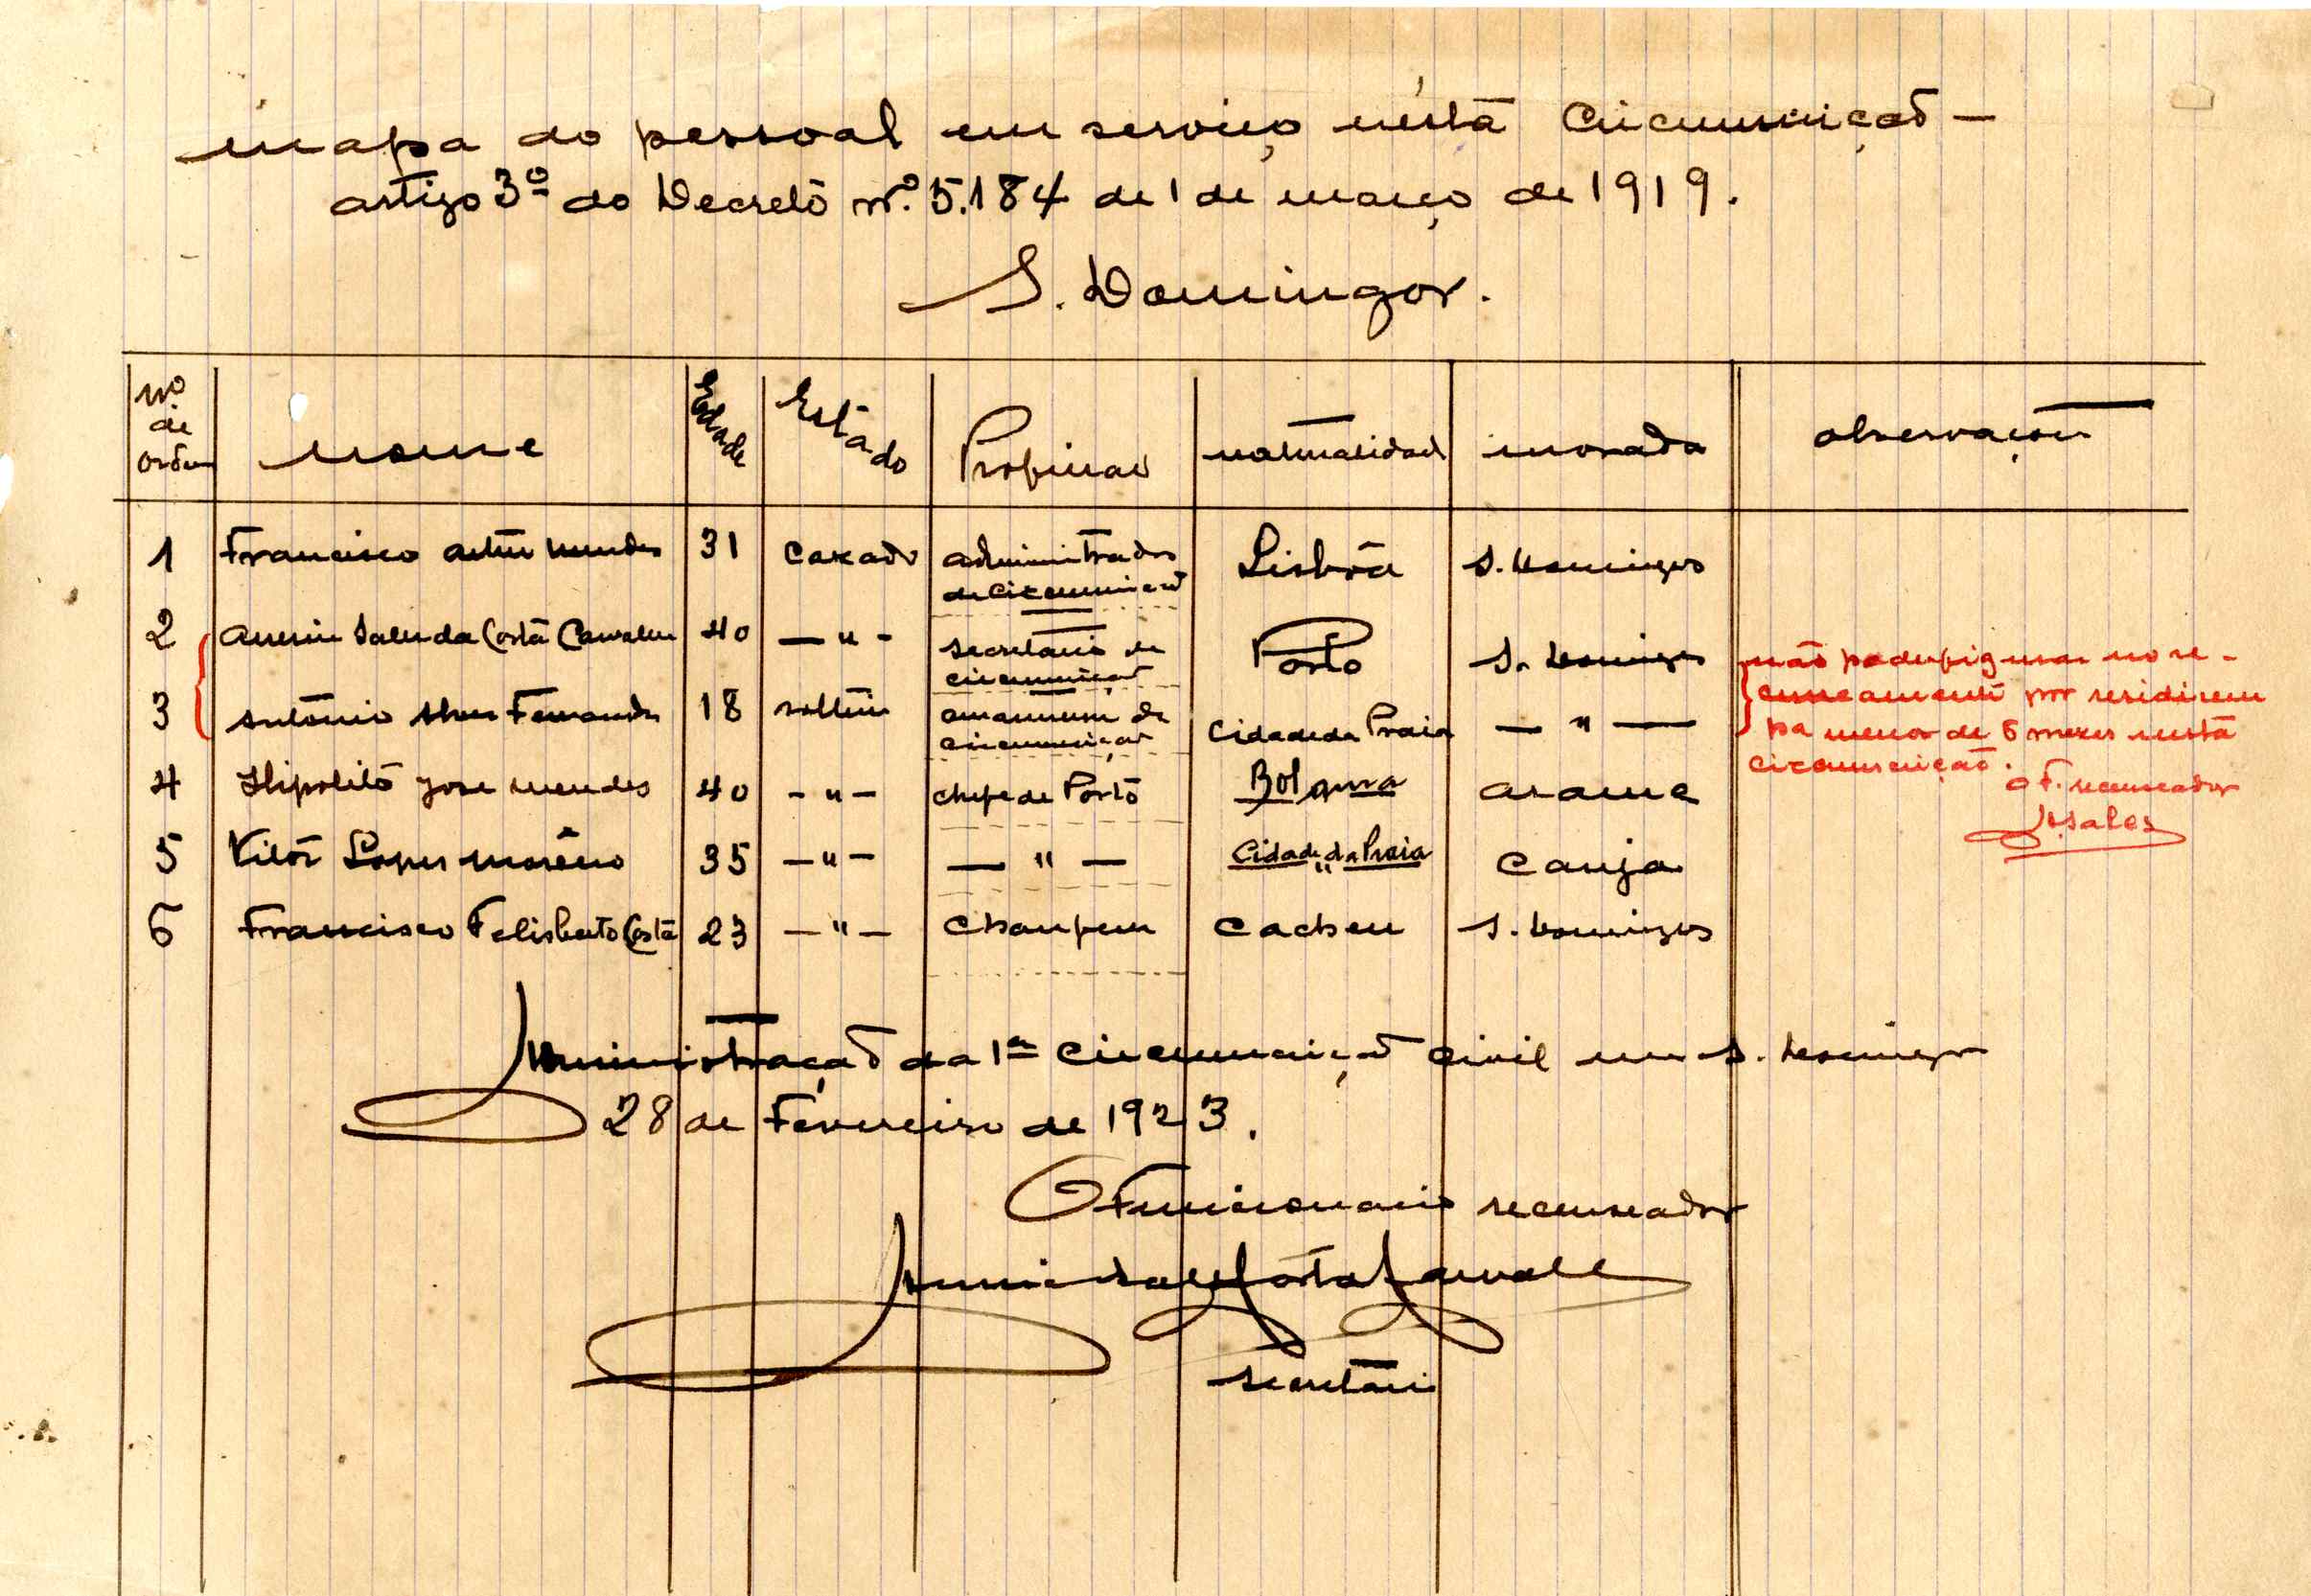 Mapa do pessoal em serviço nesta Circunscrição –
artigo 3º do Decreto nº. 5.184 de 1 de março de 1919.
S. Domingos.
Nº de Ordem Nome Edade Estado Profissão naturalidade morada observações
1 Francisco Artur Mendes 31 casado administrador de circunscrição Lisbôa S. Domingos
2 Sales da Costa Carvalho 40 — " - secretario de circunscrição Porto S. Domingos
3 António Alves Fernandes 18 solteiro amanuense de circunscrição Cidade da Praia — " —
4 Hipolito José Mendes 40 - " - chefe de Posto Bolama arame
5 Vitór Lopes Morêno 35 — " — — " — Cidade da Praia canja
6 Francisco Felisberto Costa 23 — " — Chaufeur Cacheu S. Domingos
não pode figurar no re-
censeamento por residirem
ha menos de 6 mezes nesta
circunscrição.
O F. recenseador
Sales
Administração da 1ª circunscrição civil em S. Domingos
28 de Fevereiro de 1923.
O Funcionario recenseador
Sales Costa Carvalho
secretário